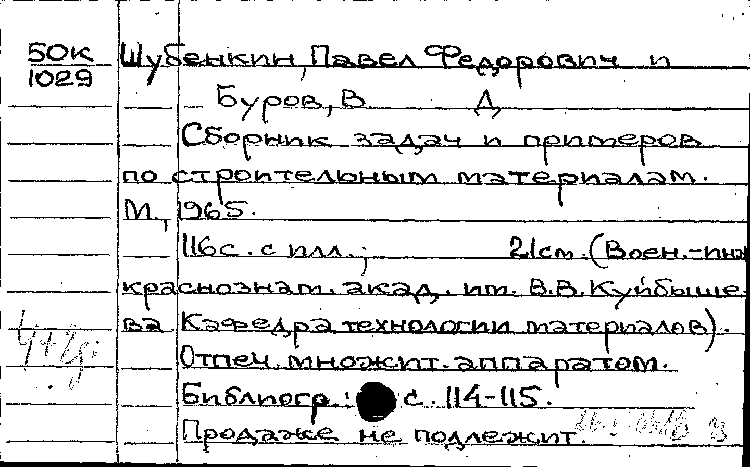 50К
1029
Шубенкин, Павел Федорович и
Буров, В Д
Сборник задач и примеров
по строительным материалам.
М., 1965.
116 с. с илл.; 21 см. (Воен.-инж
краснознам. акад. им. В.В. Куйбыше-
ва Кафедра технологии материалов).
Отпеч. множит. аппаратом.
Библиогр.: с. 114-115.
Продаже не подлежит.